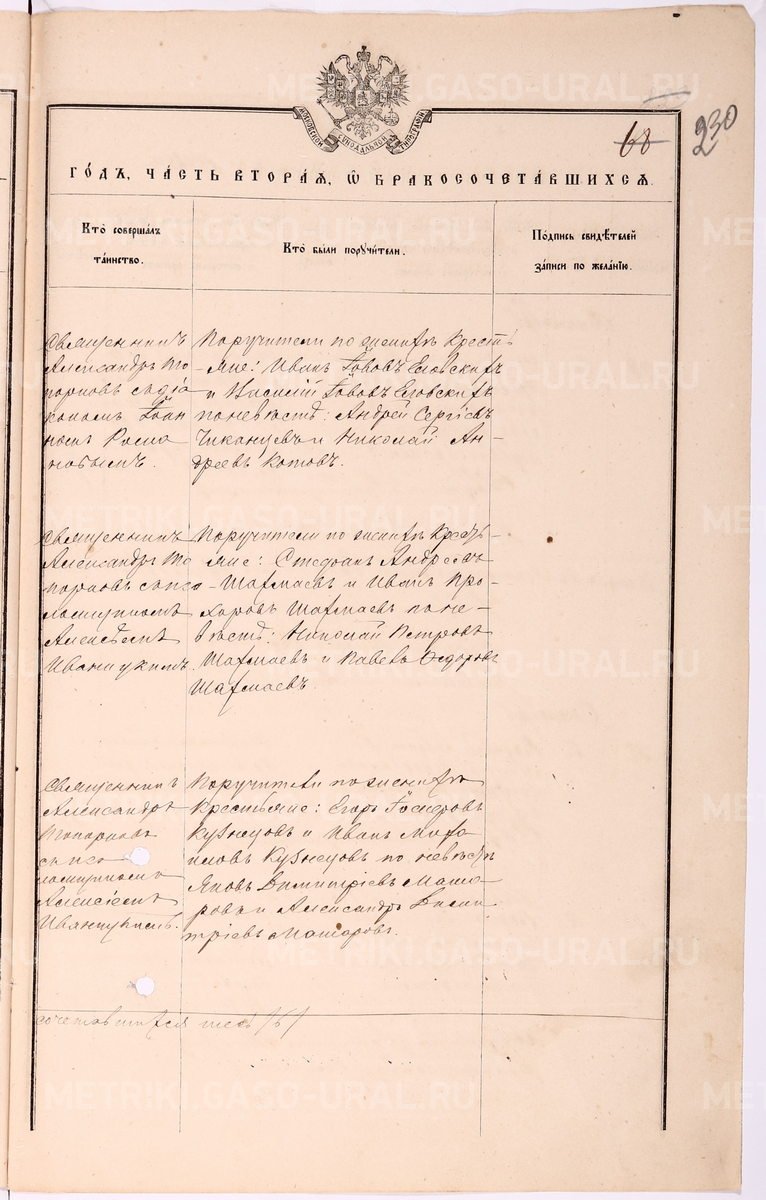 METRIKI.GASO-URAL.RU
МОСКОВСКОЙ СИНОДАЛЬНОЙ ТИПОГРАФІИ
68
230
ГО́ДЪ, ЧА́СТЬ ВТОРА́Я, Ѡ҆ БРАКОСОЧЕТА́ВШИХСЯ.
Кто̀ соверша́лъ
та́инство.
Кто̀ бы́ли поручи́тели.
По́дпись свидѣ́телей
за́писи по жела́нію.
Священникъ
Александръ То
порковъ съ діа
кономъ Іоан
номъ Рома
новымъ.
Поручители по женихѣ Кресть
яне: Иванъ Іововъ
и Іововъ
по невѣстѣ: Андрей Сергіевъ
и Николай Ан-
дреевъ Котовъ.
Священникъ
Александръ То
порковъ съ псо
ломщикомъ
Алексѣемъ
Иваницкимъ.
Поручители по женихѣ Кресть-
яне: Стефанъ Андреевъ
Шахмаевъ и Иванъ Про-
хоровъ Шахмаевъ по не-
вѣстѣ: Николай Петровъ
Шахмаевъ и Павелъ Ѳедоровъ
Шахмаевъ.
Священникъ
Александръ
Топорковъ
съ псо
ломщикомъ
Алексіемъ
Иваницкимъ.
Поручители по женихѣ
Крестьяне: Егоръ
Кузнецовъ и Иванъ
Кузнецовъ по невѣстѣ
Яковъ Димитріевъ Маша
ровъ и Александръ Дими
тріевъ Машаровъ.
сочетавшихся /6/